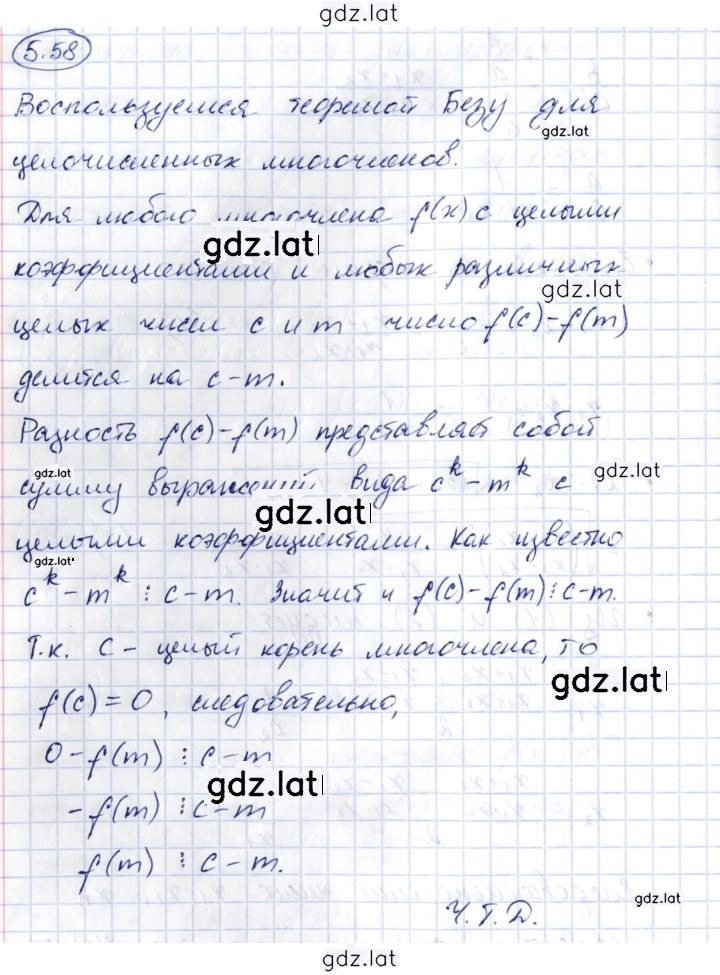 gdz.lat
5.58
Воспользуемся теоремой Безу для
gdz.lat
целочисленных многочленов.
Для любого многочлена f(x) с целыми
gdz.lat
коэффициентами и любых различных
gdz.lat
целых чисел c и m число f(c)-f(m)
делится на c-m.
Разность f(c)-f(m) представляет собой
gdz.lat gdz.lat
сумму выражений вида c^k - m^k с
gdz.lat
целыми коэффициентами. Как известно
gdz.lat
c^k - m^k ⋮ c-m. Значит и f(c)-f(m)⋮c-m.
Т.к. c - целый корень многочлена, то
gdz.lat
f(c) = 0, следовательно,
0-f(m) ⋮ c-m
gdz.lat
-f(m) ⋮ c-m
f(m) ⋮ c-m.
gdz.lat
Ч.Т.Д.
gdz.lat